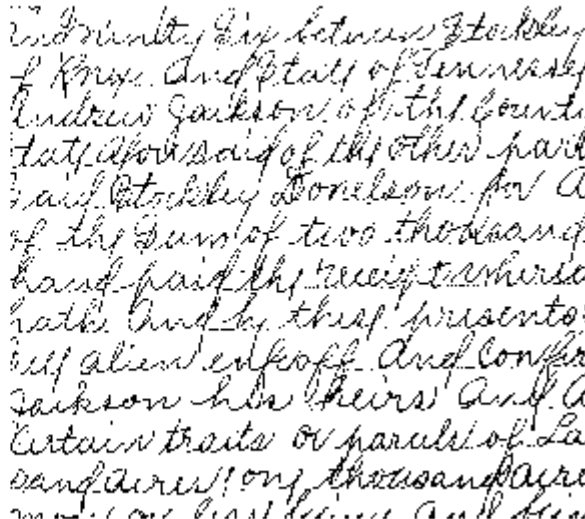 and Ninety Six between Stockley
of Knox And State of Tennessee
Andrew Jackson of the Count
State Aforesaid of the other part
said Stockley Donelson for a
of the Sum of two thousand
hand paid the receipt wherso
hath And by these presents
sell alien enfeoff And Confir
Jackson his heirs And A
Certain traits or parcels of La
sand acres one thousand acre
more or less being and